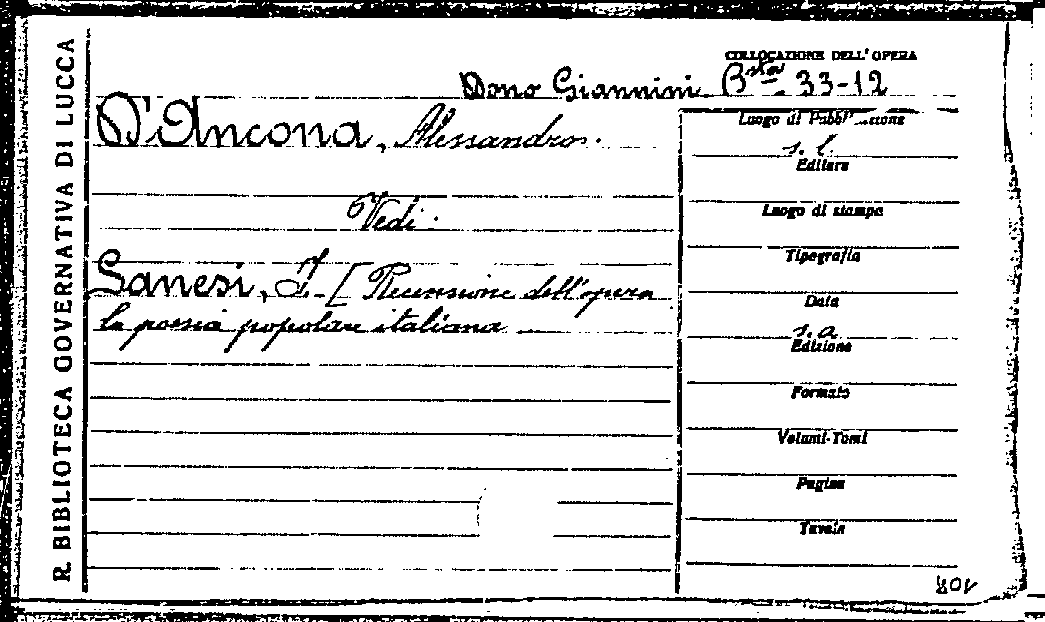 R. BIBLIOTECA GOVERNATIVA DI LUCCA
COLLOCAZIONE DELL'OPERA
Dono Giannini. Bsta 33-12
D'Ancona, Alessandro.
Vedi:
Sanesi, I. [Recensione dell'opera
la poesia popolare italiana
Luogo di Pubblicazione
s. l.
Editore
Luogo di stampa
Tipografia
Data
s. a.
Edizione
Formato
Volumi-Tomi
Pagine
Tavole